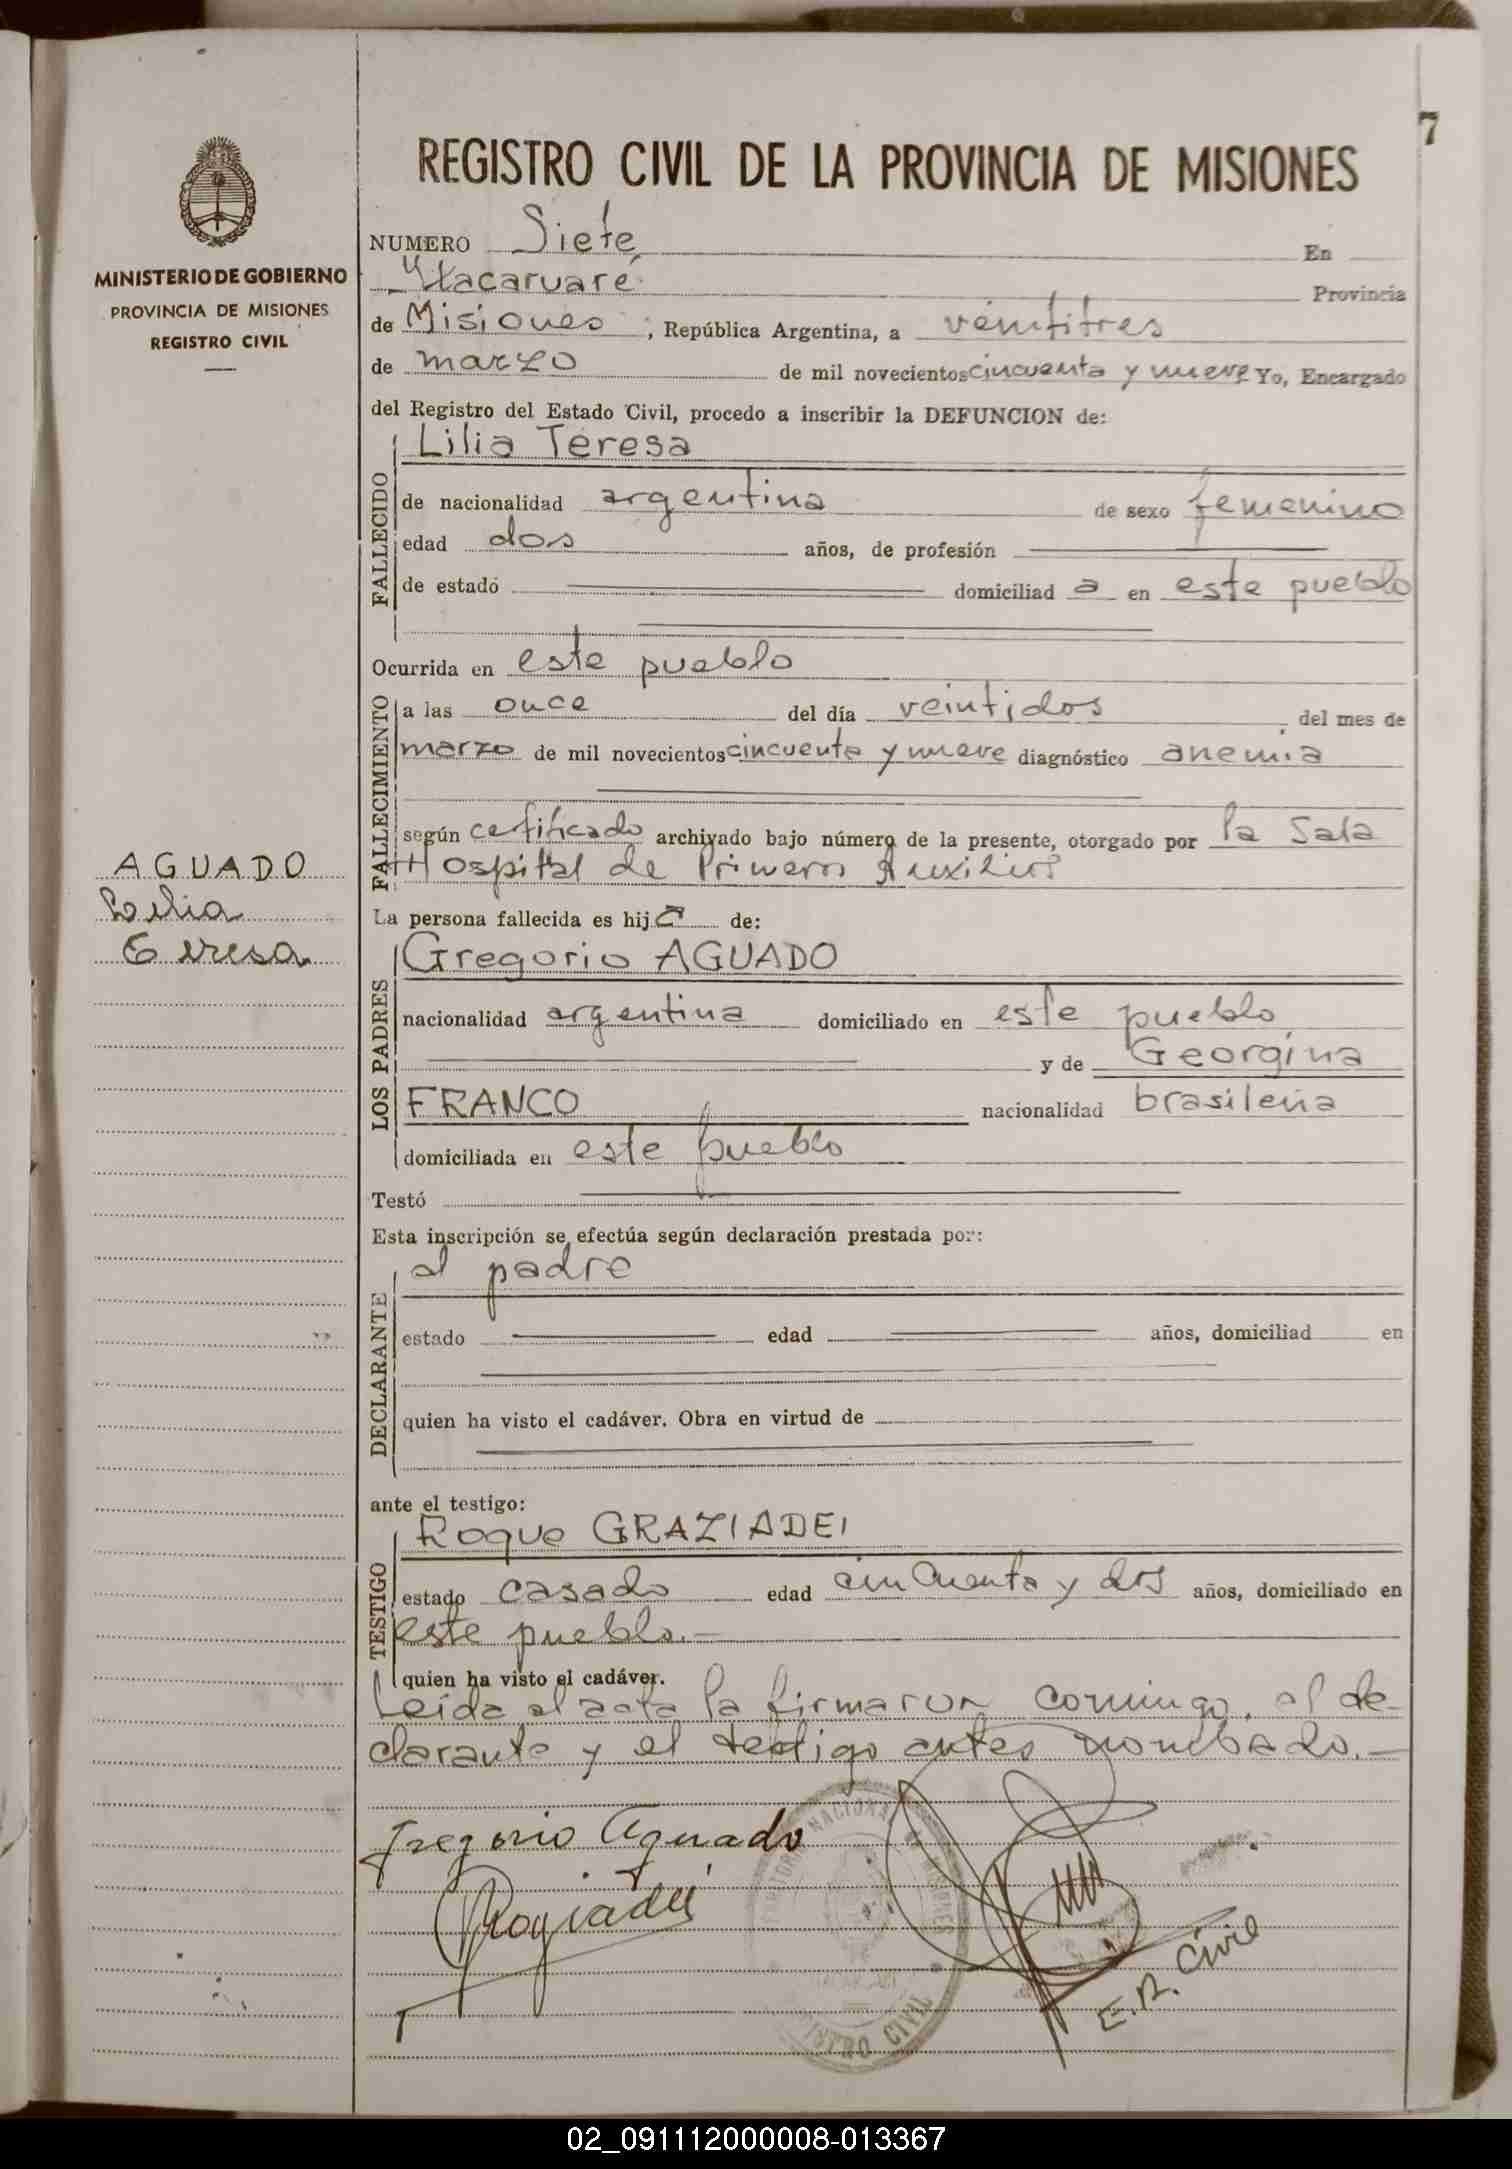 7
REGISTRO CIVIL DE LA PROVINCIA DE MISIONES
MINISTERIO DE GOBIERNO
PROVINCIA DE MISIONES
REGISTRO CIVIL
NUMERO Siete En
Itacaruaré Provincia
de Misiones, República Argentina, a veintitres
de marzo de mil novecientos cincuenta y nueve Yo, Encargado
del Registro del Estado Civil, procedo a inscribir la DEFUNCION de:
FALLECIDO
Lilia Teresa
de nacionalidad argentina de sexo femenino
edad dos años, de profesión
de estado domiciliad a en este pueblo
Ocurrida en este pueblo
FALLECIMIENTO
a las once del día veintidos del mes de
marzo de mil novecientos cincuenta y nueve diagnóstico anemia
según certificado archivado bajo número de la presente, otorgado por la Sala
Hospital de Primeros Auxilios
AGUADO
Lilia
Teresa
La persona fallecida es hija de:
LOS PADRES
Gregorio AGUADO
nacionalidad argentina domiciliado en este pueblo
y de Georgina
FRANCO nacionalidad brasileña
domiciliada en este pueblo
Testó
Esta inscripción se efectúa según declaración prestada por:
DECLARANTE
el padre
estado edad años, domiciliad en
quien ha visto el cadáver. Obra en virtud de
ante el testigo:
TESTIGO
Roque GRAZIADEI
estado casado edad cincuenta y dos años, domiciliado en
este pueblo.-
quien ha visto el cadáver.
Leida el acta la firmaron conmigo, el de-
clarante y el testigo antes nombrado.-
Gregorio Aguado
E. R. Civil
REGISTRO CIVIL
02_091112000008-013367